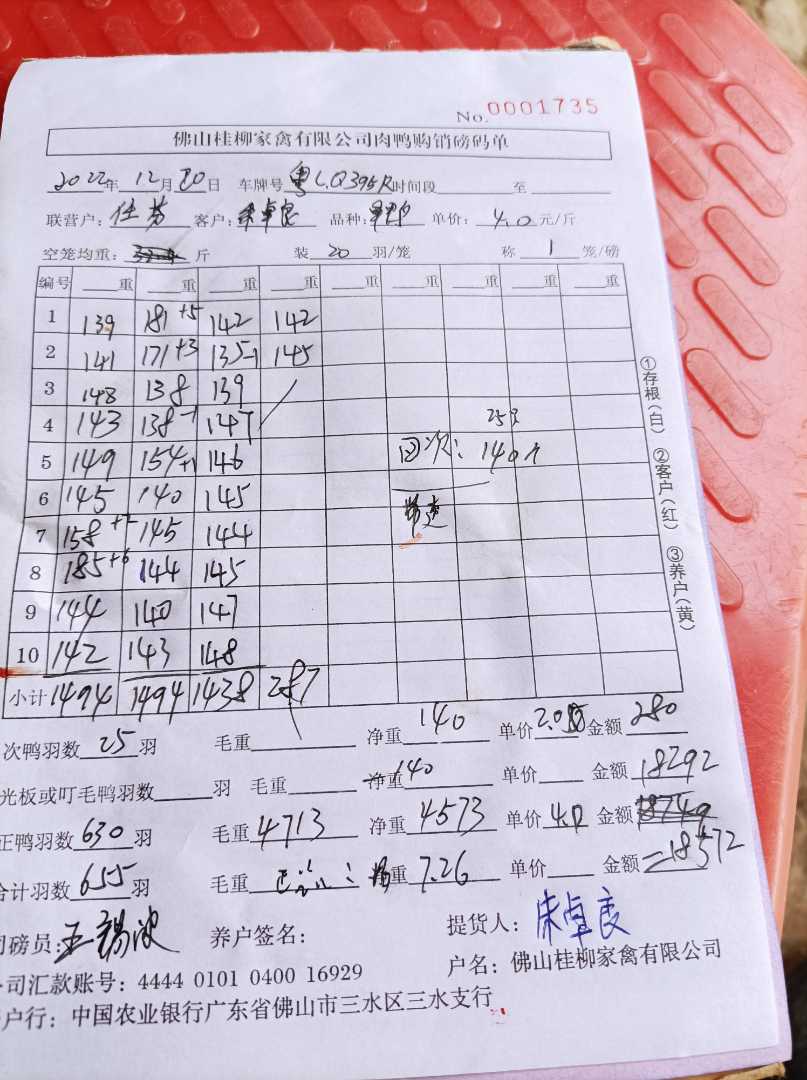 No. 0001735
佛山桂柳家禽有限公司肉鸭购销磅码单
2022年 12月 20日 车牌号 粤L.Q395R 时间段 至
联营户: 客户: 朱卓良 品种: 单价: 4.0 元/斤
空笼均重: 斤 装 20 羽/笼 称 1 笼/磅
编号 重 重 重 重 重 重 重 重
1 139 181+5 142 142
2 141 171+3 135-1 145
3 148 138 139
4 143 138-1 147 25只
5 149 154+1 146 140斤
6 145 140 145
7 158 145 144
8 185+6 144 145
9 144 140 147
10 142 143 148
小计 1494 1494 1438 287
①存根(白) ②客户(红) ③养户(黄)
次鸭羽数 25 羽 毛重 净重 140 单价 2.0 金额 280
光板或叮毛鸭羽数 羽 毛重 净重 140 单价 金额 18292
正鸭羽数 630 羽 毛重 4713 净重 4573 单价 4.0 金额
合计羽数 655 羽 毛重 重 7.26 单价 金额 =18572
司磅员: 王锡波 养户签名: 提货人: 朱卓良
公司汇款账号: 4444 0101 0400 16929 户名: 佛山桂柳家禽有限公司
户行: 中国农业银行广东省佛山市三水区三水支行